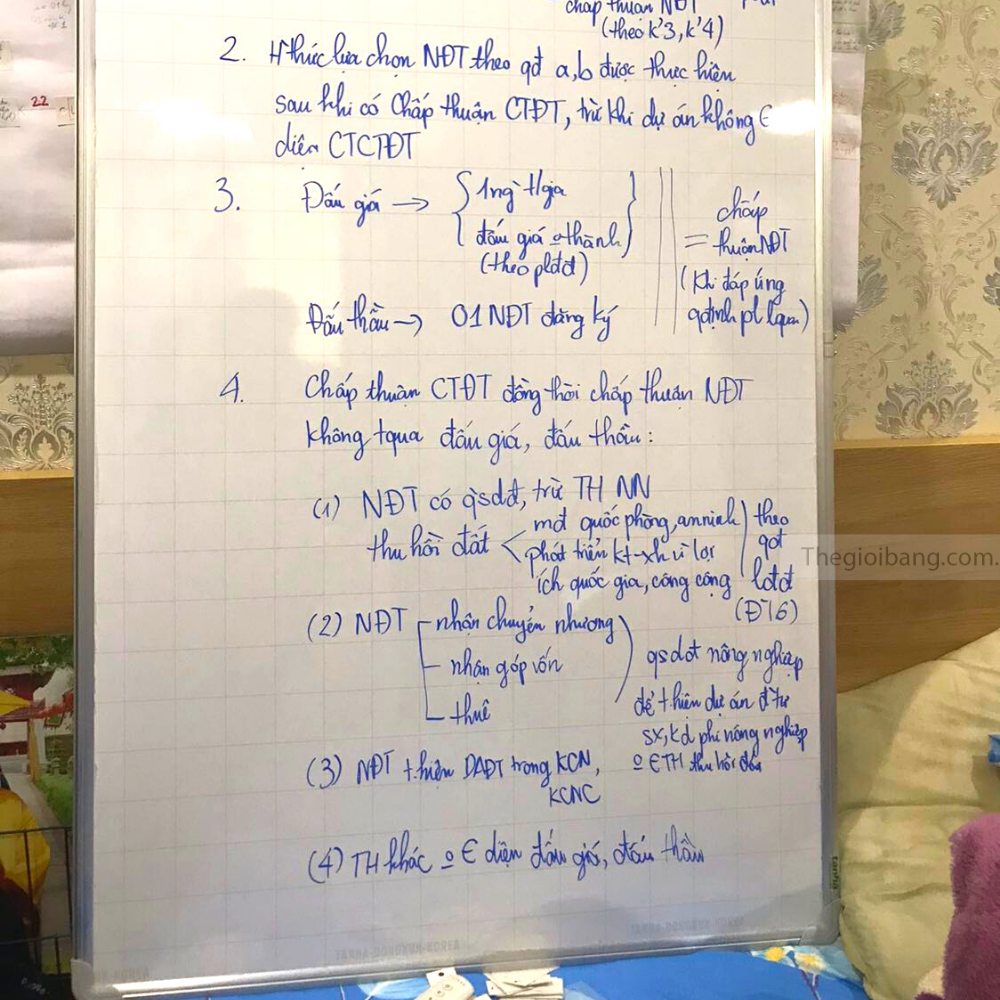 chấp thuận NĐT
(theo k'3, k'4)
2. Hthức lựa chọn NĐT theo qđ a,b được thực hiện
sau khi có Chấp thuận CTĐT, trừ khi dự án không ∈
diện CTCTĐT
3. Đấu giá → { 1ng` t/gia
đấu giá o thành }
(theo plđđ)
chấp
= thuận NĐT
(khi đáp ứng
qđịnh pl lquan)
Đấu thầu → 01 NĐT đăng ký
4. Chấp thuận CTĐT đồng thời chấp thuận NĐT
không tqua đấu giá, đấu thầu:
(1) NĐT có qsdđ, trừ TH NN
thu hồi đất < mđ quốc phòng, an ninh
phát triển kt-xh vì lợi
ích quốc gia, công cộng
theo
qđ
lđđ
(Đ16)
(2) NĐT - nhận chuyển nhượng
- nhận góp vốn
- thuê
qsdđ nông nghiệp
để thiện dự án đtư
sx, kd phi nông nghiệp
o ∈ TH thu hồi đất
(3) NĐT thiện DAĐT trong KCN,
KCNC
(4) TH khác o ∈ diện đấu giá, đấu thầu
22
Thegioibang.com.